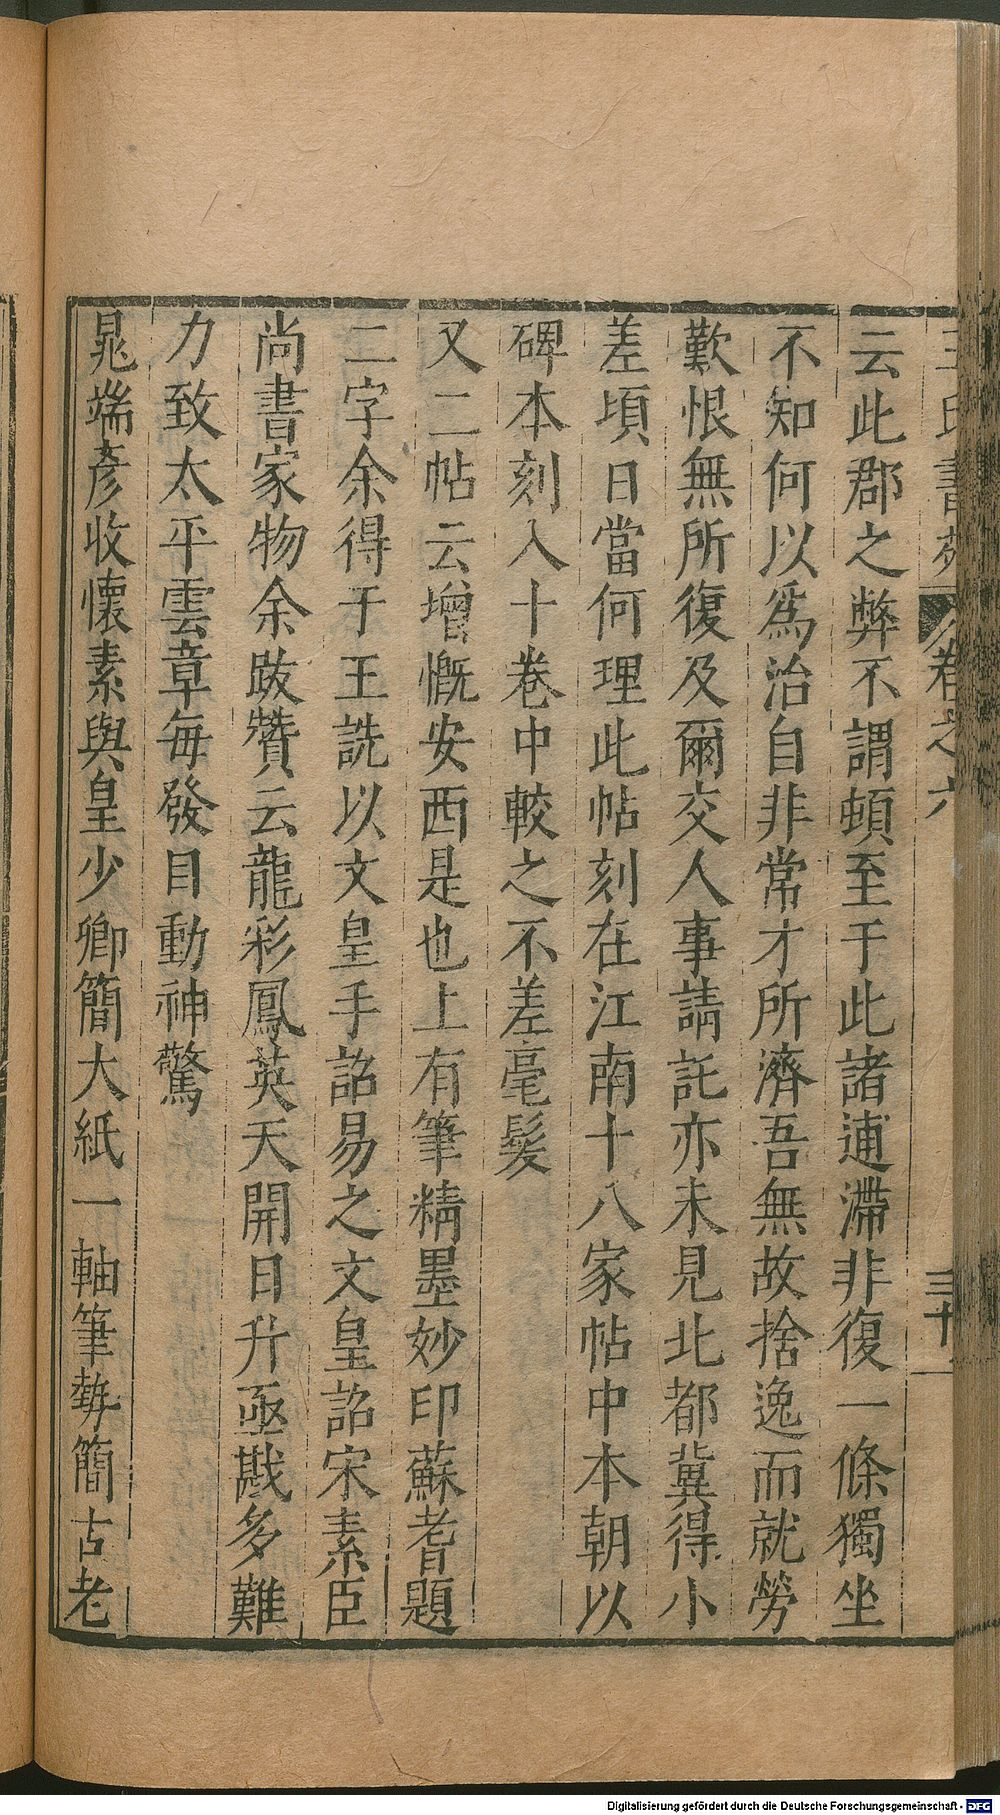 王氏書苑 卷之六 三十一
云此郡之弊不謂頓至于此諸逋滯非復一條獨坐
不知何以爲治自非常才所濟吾無故捨逸而就勞
歎恨無所復及爾交人事請託亦未見北都冀得小
差頃日當何理此帖刻在江南十八家帖中本朝以
碑本刻入十卷中較之不差毫髮
又二帖云增慨安西是也上有筆精墨妙印蘇耆題
二字余得于王詵以文皇手詔易之文皇詔宋素臣
尚書家物余跋贊云龍彩鳳英天開日升亟戡多難
力致太平雲章每發目動神驚
晁端彥收懷素與皇少卿簡大紙一軸筆勢簡古老
Digitalisierung gefördert durch die Deutsche Forschungsgemeinschaft - DFG